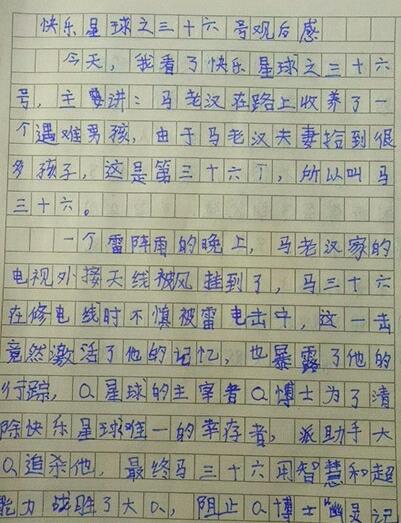 快乐星球之三十六号观后感
今天，我看了快乐星球之三十六
号，主要讲：马老汉在路上收养了一
个遇难男孩，由于马老汉夫妻捡到很
多孩子，这是第三十六个，所以叫马
三十六。
一个雷阵雨的晚上，马老汉家的
电视外接天线被风挂到了，马三十六
在修电线时不慎被雷电击中，这一击
竟然激活了他的记忆，也暴露了他的
行踪，Q星球的主宰者Q博士为了清
除快乐星球唯一的幸存者，派助手大
Q追杀他，最终马三十六用智慧和超
能力战胜了大Q，阻止Q博士“幽灵记